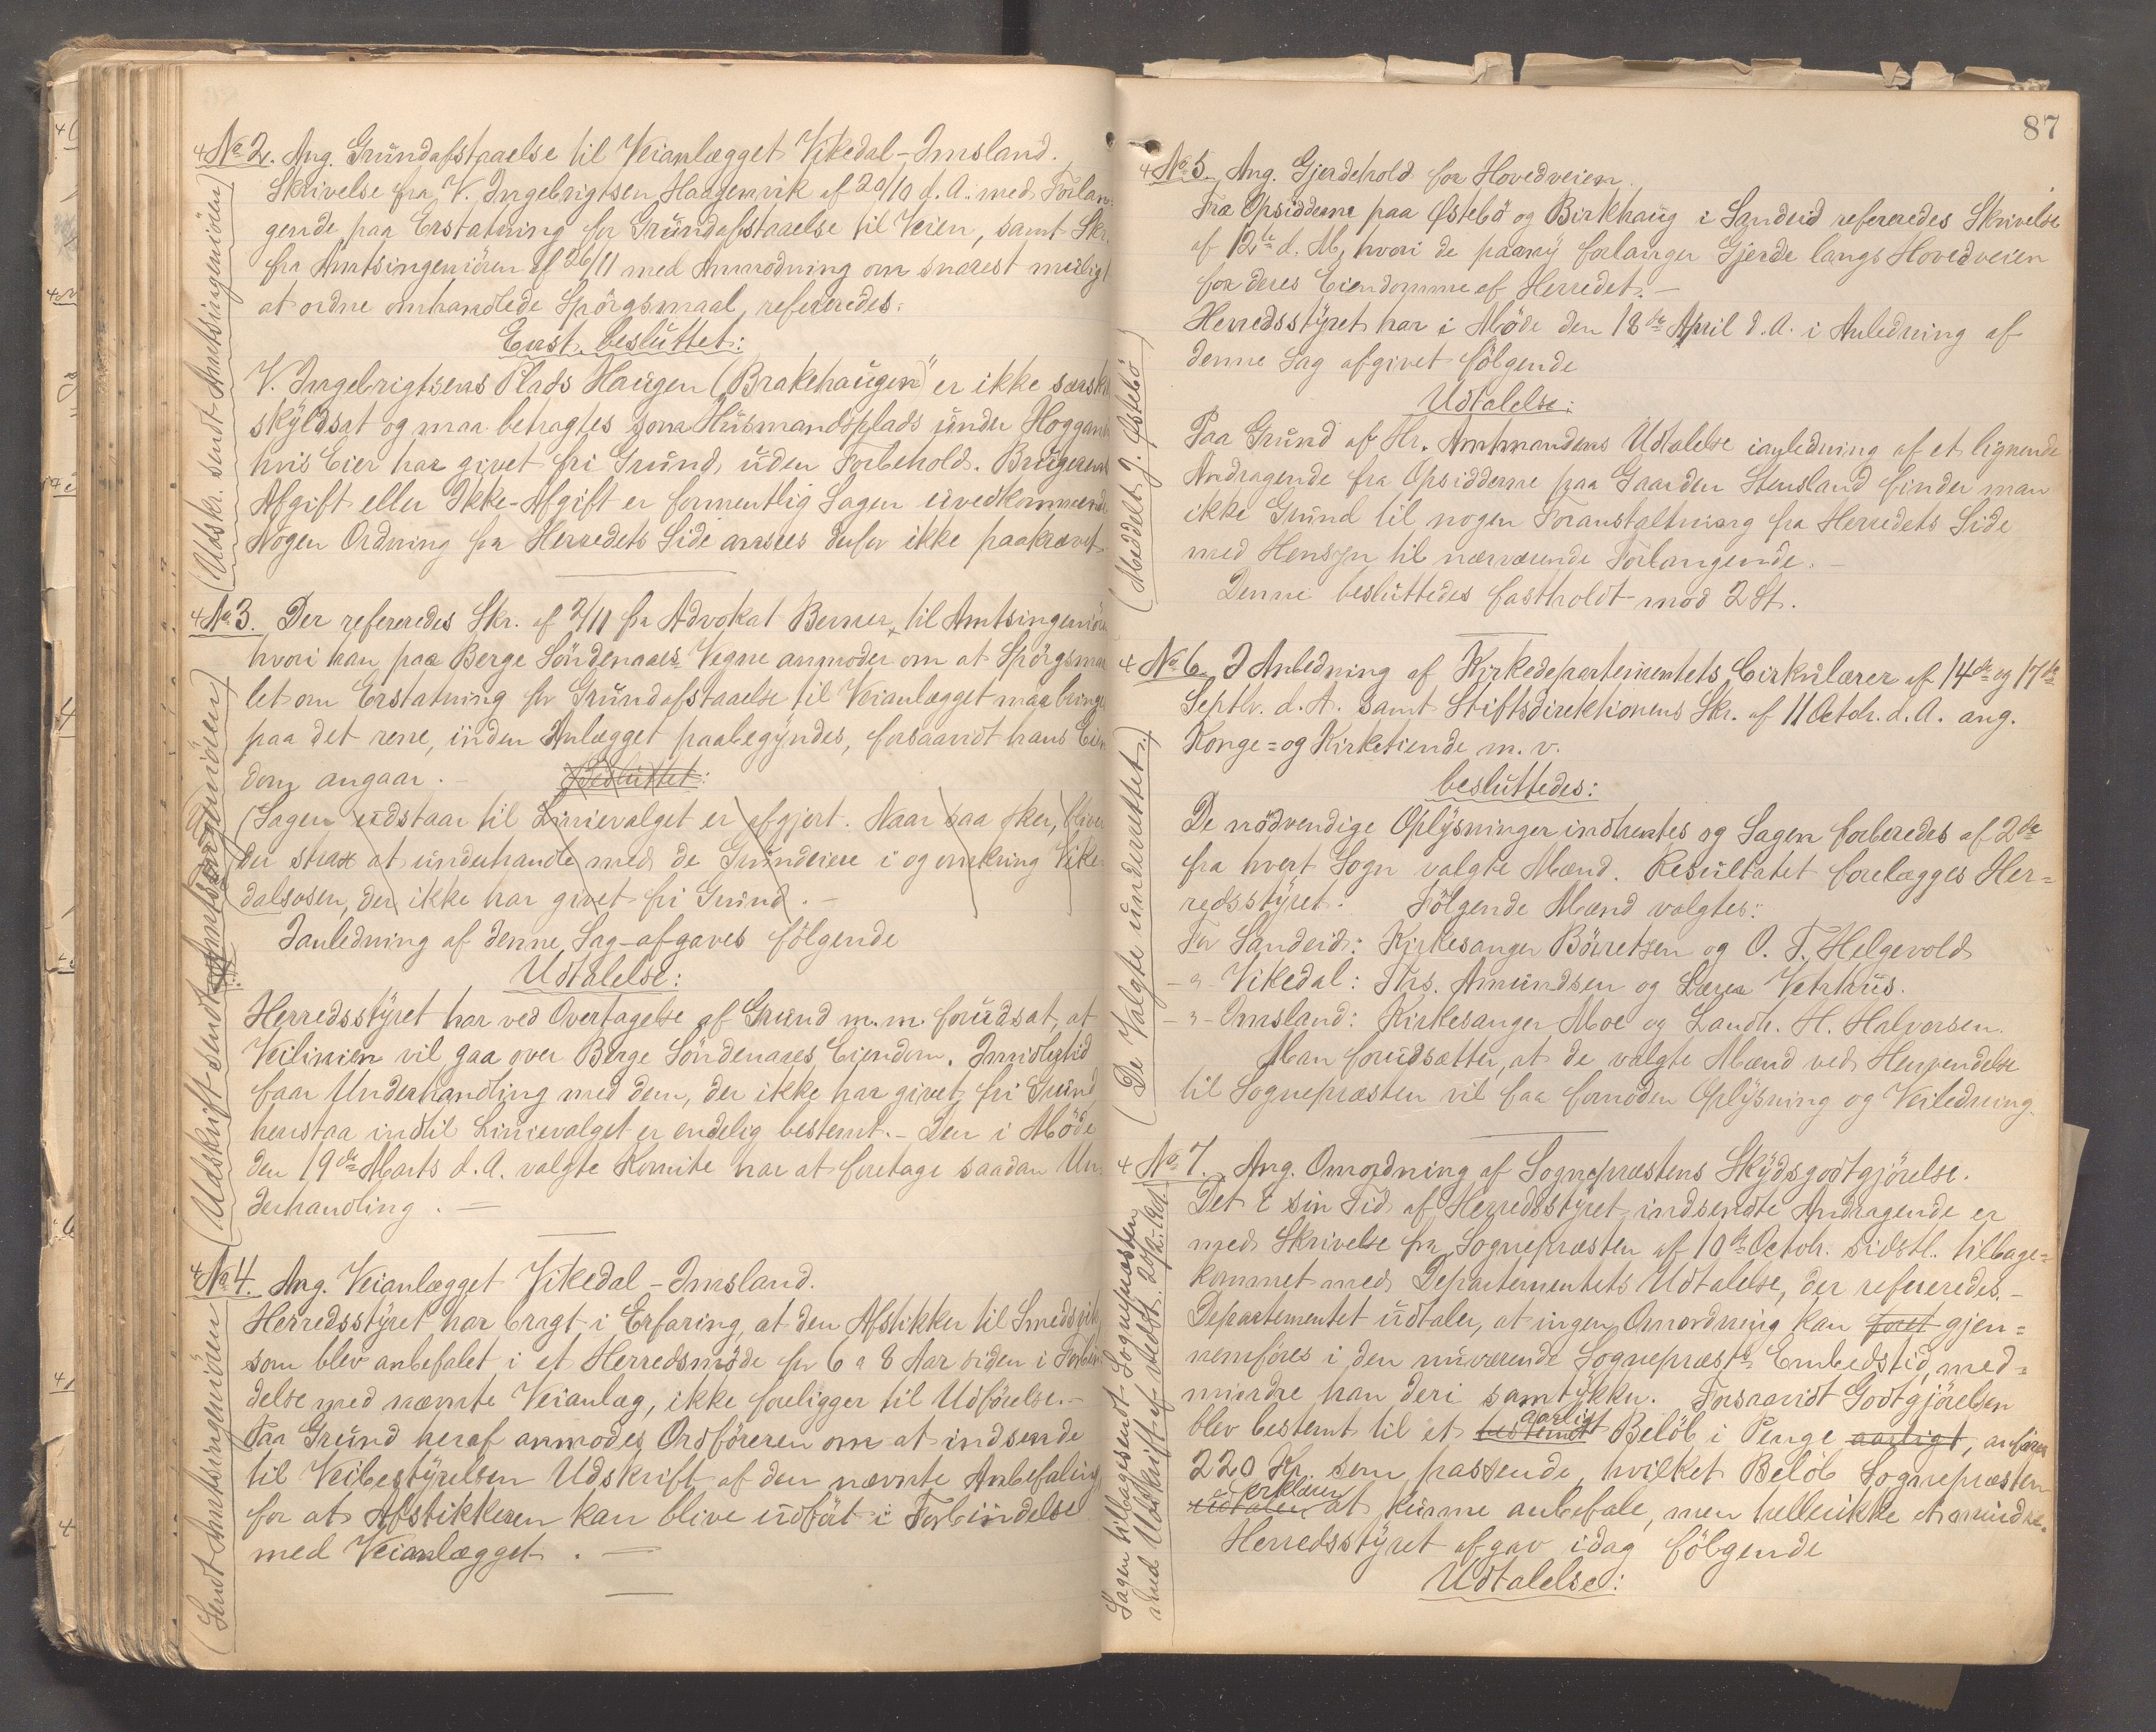 No 2. Ang. Grundafstaaelse til Veianlægget Vikedal-Imsland.
Skrivelse fra V. Ingebrigtsen Haagenvik af 20/10 d. A. med Forlan-
gende paa Erstatning for Grundafstaaelse til Veien, samt Skr.
fra Amtsingeniören af 26/11 med Anmodning om snarest muligt
at ordne omhandlede Spörgsmaal, refereredes.
Enst. besluttet:
V. Ingebrigtsens Plads Haugen (Brakehaugen) er ikke særsk.
skyldsat og maa betragtes som Husmandsplads under
hvis Eier har givet fri Grund, uden Forbehold. Brugerens
Afgift eller Ikke-Afgift er formentlig Sagen uvedkommende
Nogen Ordning fra Herredets Side ansees derfor ikke paakrævet
(Udskr. sendt Amtsingeniören)
No 3. Der refereredes Skr. af 2/11 fra Advokat Berner til Amtsingeniören
hvori han paa Berge Söndenaaes Vegne anmoder om at Spörgsmaa
let om Erstatning for Grundafstaaelse til Veianlægget maa bringes
paa det rene, inden Anlægget paabegyndes, forsaavidt hans Eien
dom angaar. - Besluttet:
(Sagen udstaar til Linievalget er afgjort. Naar saa sker, bliver
der strax at underhandle med de Grundeiere i og omkring Vike-
dalsosen, der ikke har givet fri Grund. -
Ianledning af denne Sag afgaves fölgende
Udtalelse:
Herredsstyret har ved Overtagelse af Grund m. m. forudsat, at
Veilinien vil gaa over Berge Söndenaaes Eiendom. Imidlertid
faar Underhandling med dem, der ikke har givet fri Grund
henstaa indtil Linievalget er endelig bestemt. - Den i Möde
den 19de Marts d. A. valgte Komite har at foretage saadan Un-
derhandling. -
(Udskrift sendt Amtsingeniören)
No 4. Ang. Veianlægget Vikedal-Imsland.
Herredsstyret har bragt i Erfaring, at den Afstikker til Smedsvik
som blev anbefalet i et Herredsmöde for 6 a 8 Aar siden i Forbin
delse med nævnte Veianlæg, ikke foreligger til Udförelse. -
Paa Grund heraf anmodes Ordföreren om at indsende
til Veibestyrelsen Udskrift af den nævnte Anbefaling
for at Afstikkeren kan blive udfört i Forbindelse
med Veianlægget. -
(Sendt Amtsingeniören)
87
No 5. Ang. Gjerdehold for Hovedveien.
Fra Opsidderne paa Östebö og Birkhaug i Sandeid refereredes Skrivelse
af 12te d. M, hvori de paany forlanger Gjerde langs Hovedveien
for deres Eiendomme af Herredet. -
Herredsstyret har i Möde den 18de April d. A. i Anledning af
denne Sag afgivet fölgende
Udtalelse:
Paa Grund af Hr. Amtmandens Udtalelse ianledning af et lignende
Andragende fra Opsidderne paa Gaarden Stensland finder man
ikke Grund til nogen Foranstaltning fra Herredets Side
med Hensyn til nærværende Forlangende. -
Denne besluttedes fastholdt mod 2 St.
(Meddelt J. Östebö)
No 6. I Anledning af Kirkedepartementets Cirkulærer af 14de og 17de
Septbr. d. A. samt Stiftsdirektionens Skr. af 11 Octob. d. A. ang.
Konge- og Kirketiende m. v.
besluttedes:
De nödvendige Oplysninger indhentes og Sagen forberedes af 2de
fra hvert Sogn valgte Mænd. Resultatet forelægges Her-
redsstyret. Fölgende Mænd valgtes:
For Sandeid: Kirkesanger Börretzen og O. T. Helgevold
- " - Vikedal: Ths. Amundsen og Lærer Vetrhus.
- " - Imsland: Kirkesanger Moe og Landh. H. Halvorsen.
Man forudsætter, at de valgte Mænd ved Henvendelse
til Sognepræsten vil faa fornöden Oplysning og Veiledning.
(De Valgte underrettet)
No 7. Ang. Omordning af Sognepræstens Skydsgodtgjörelse.
Det i sin Tid af Herredsstyret indsendte Andragende er
med Skrivelse fra Sognepræsten af 10de Octob. sidstl. tilbage-
kommet med Departementets Udtalelse, der refereredes. -
Departementet udtaler, at ingen Omordning kan foret gjen-
nemföres i den nuværende Sognepræsts Embedstid, med-
mindre han deri samtykker. Forsaavidt Godtgjörelsen
blev bestemt til et bestemt aarligt Belöb i Penge aarligt, anföres
220 Kr. som passende, hvilket Belöb Sognepræsten
udtaler erklærer at kunne anbefale, men hellerikke et mindre.
Herredsstyret afgav idag fölgende
Udtalelse:
Sagen tilbagesendt Sognepræsten
med Udskrift af